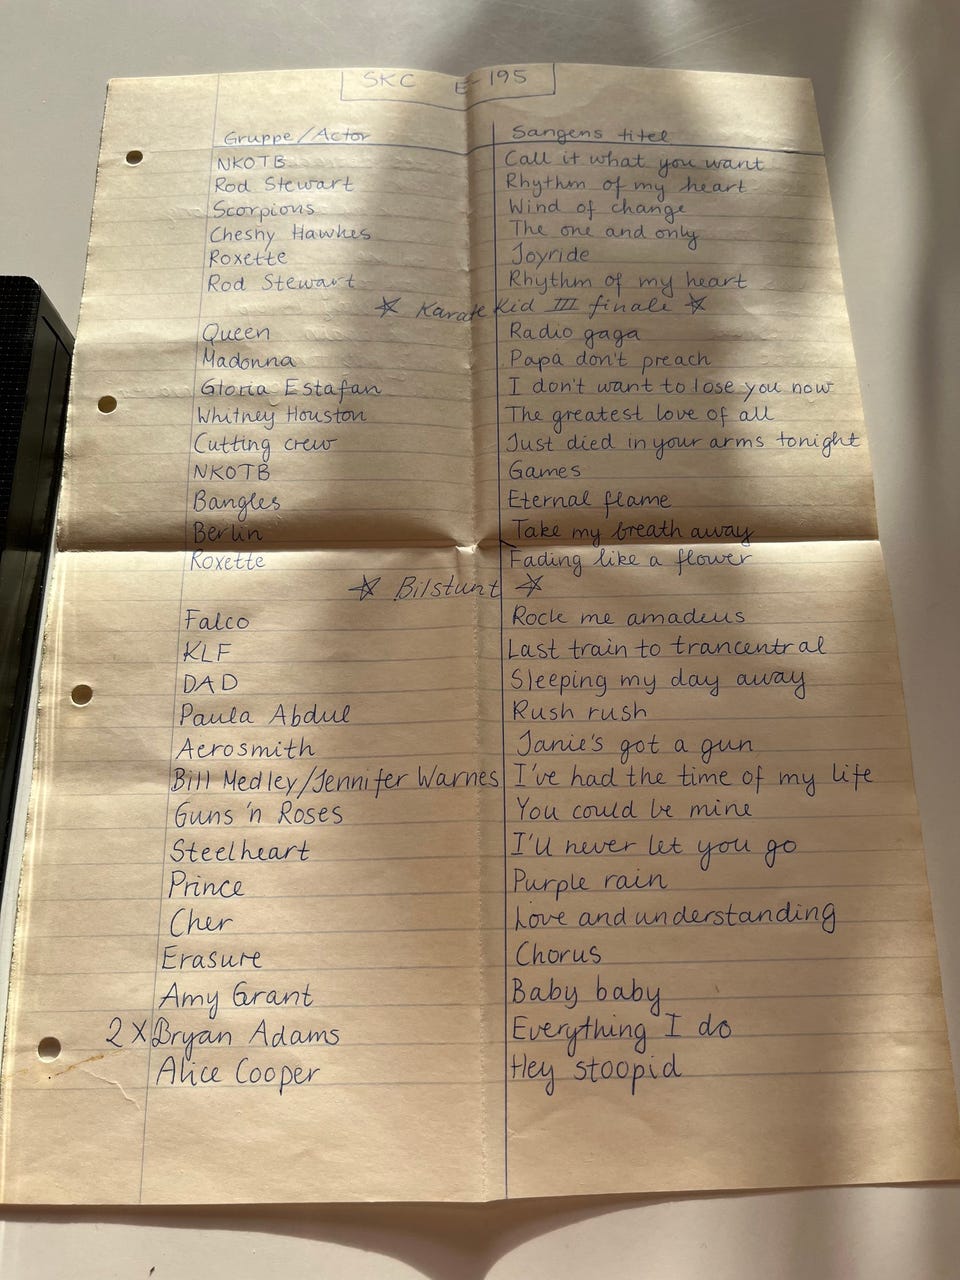 SKC E-195
Gruppe/Actor Sangens titel
NKOTB Call it what you want
Rod Stewart Rhythm of my heart
Scorpions Wind of change
Chesny Hawkes The one and only
Roxette Joyride
Rod Stewart Rhythm of my heart
☆ Karate Kid III finale ☆
Queen Radio gaga
Madonna Papa don't preach
Gloria Estafan I don't want to lose you now
Whitney Houston The greatest love of all
Cutting crew Just died in your arms tonight
NKOTB Games
Bangles Eternal flame
Berlin Take my breath away
Roxette Fading like a flower
☆ Bilstunt ☆
Falco Rock me amadeus
KLF Last train to trancentral
DAD Sleeping my day away
Paula Abdul Rush rush
Aerosmith Janie's got a gun
Bill Medley/Jennifer Warnes I've had the time of my life
Guns 'n Roses You could be mine
Steelheart I'll never let you go
Prince Purple rain
Cher Love and understanding
Erasure Chorus
Amy Grant Baby baby
2 X Bryan Adams Everything I do
Alice Cooper Hey stoopid